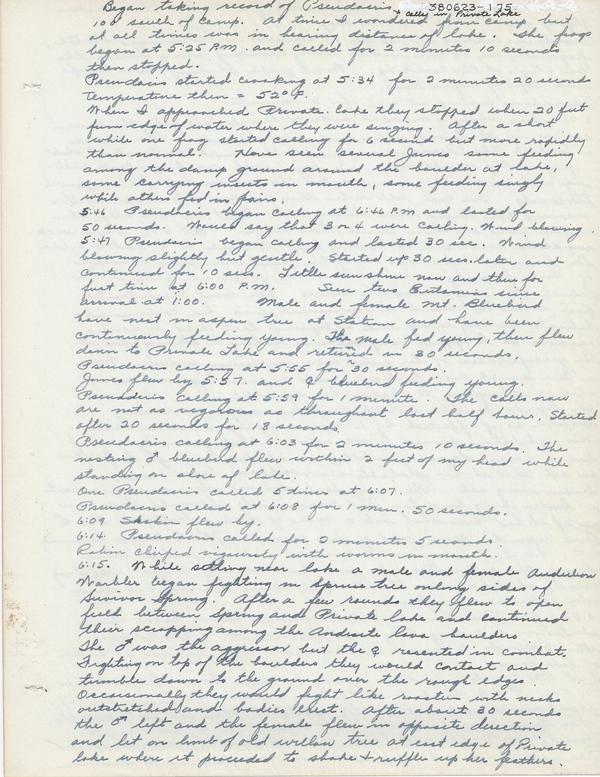 380623-175
Began taking record of Pseudacris + calls in Private Lake
100' south of camp. At time I wandered from camp but
at all times was in hearing distance of lake. The frogs
began at 5:25 P.M. and called for 2 minutes 10 seconds
then stopped.
Pseudacris started croaking at 5:34 for 2 minutes 20 seconds
Temperature then = 52° F.
When I approached Private Lake they stopped when 20 feet
from edge of water where they were singing. After a short
while one frog started calling for 6 second but more rapidly
than normal. Have seen several Juncos some feeding
among the damp ground around the boarder at lake,
some carrying insects in mouth, some feeding singly
while others fed in pairs.
5:46 Pseudacris began calling at 6:46 P.M and lasted for
50 seconds. Would say that 3 or 4 were calling. Wind blowing.
5:47 Pseudacris began calling and lasted 30 sec. Wind
blowing slightly but gentle. Started up 30 sec. later and
continued for 10 secs. Little sunshine now and then for
first time at 6:00 P.M. Seen two Eutamias since
arrival at 1:00. Male and female Mt. Bluebird
have nest in aspen tree at Station and have been
continuously feeding young. The male fed young, then flew
down to Private Lake and returned in 30 seconds.
Pseudacris calling at 5:55 for 30 seconds.
Juncos flew by 5:57. and ♀ bluebird feeding young.
Pseudacris calling at 5:59 for 1 minute. The calls now
are not as vigorous as throughout last half hour. Started
after 20 seconds for 18 seconds
Pseudacris calling at 6:03 for 2 minutes 10 seconds. The
nesting ♂ bluebird flew within 2 feet of my head while
standing on shore of lake.
One Pseudacris called 5 times at 6:07.
Pseudacris called at 6:08 for 1 min. 50 seconds.
6:09 Siskin flew by.
6:14. Pseudacris called for 0 minutes 5 seconds
Robin chirped vigorously with worms in mouth.
6:15. While sitting near lake a male and female Audubon
Warbler began fighting in spruce tree on long sides of
Survivor Spring. After a few rounds they flew to open
field between Spring and Private lake and continued
their scrapping among the Andesite lava boulders
The ♂ was the aggressor but the ♀ resented in combat.
Fighting on top of the boulders they would contact and
tumble down to the ground over the rough edges.
Occassionally they would fight like roosters with necks
outstretched and bodies erect. After about 30 seconds
the ♂ left and the female flew in opposite direction
and lit on limb of old willow tree at east edge of Private
lake where it proceeded to shake + ruffle up her feathers.